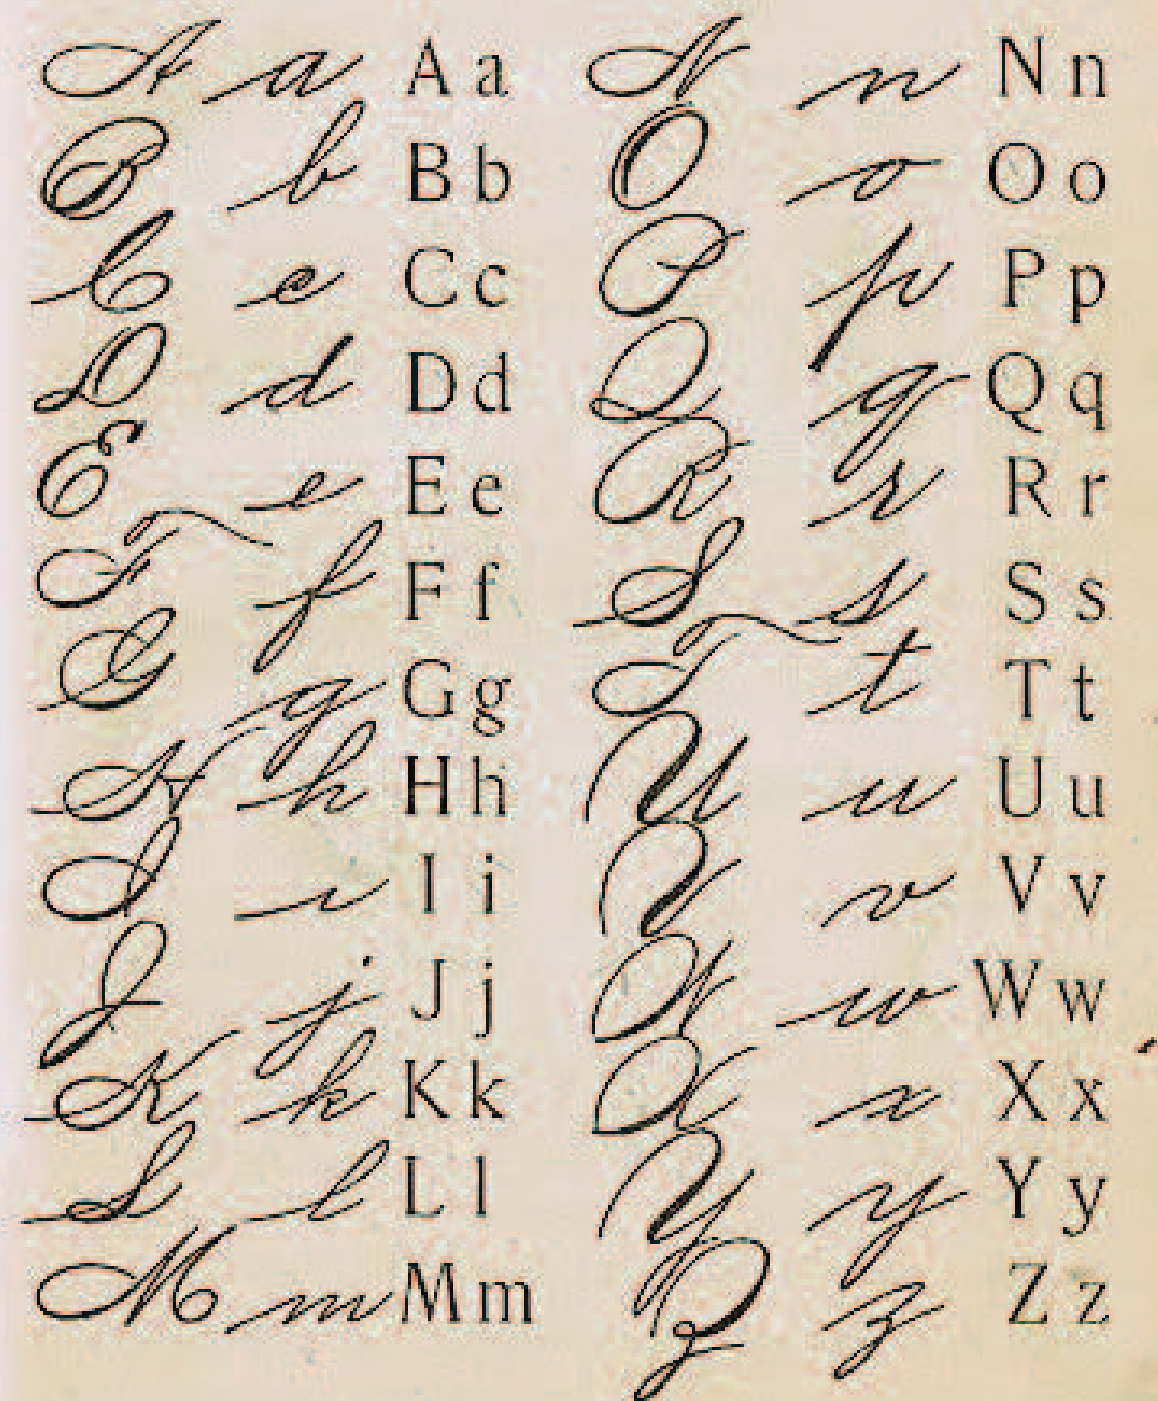 A a A a
B b B b
C c C c
D d D d
E e E e
F f F f
G g G g
H h H h
I i I i
J j J j
K k K k
L l L l
M m M m
N n N n
O o O o
P p P p
Q q Q q
R r R r
S s S s
T t T t
U u U u
V v V v
W w W w
X x X x
Y y Y y
Z z Z z